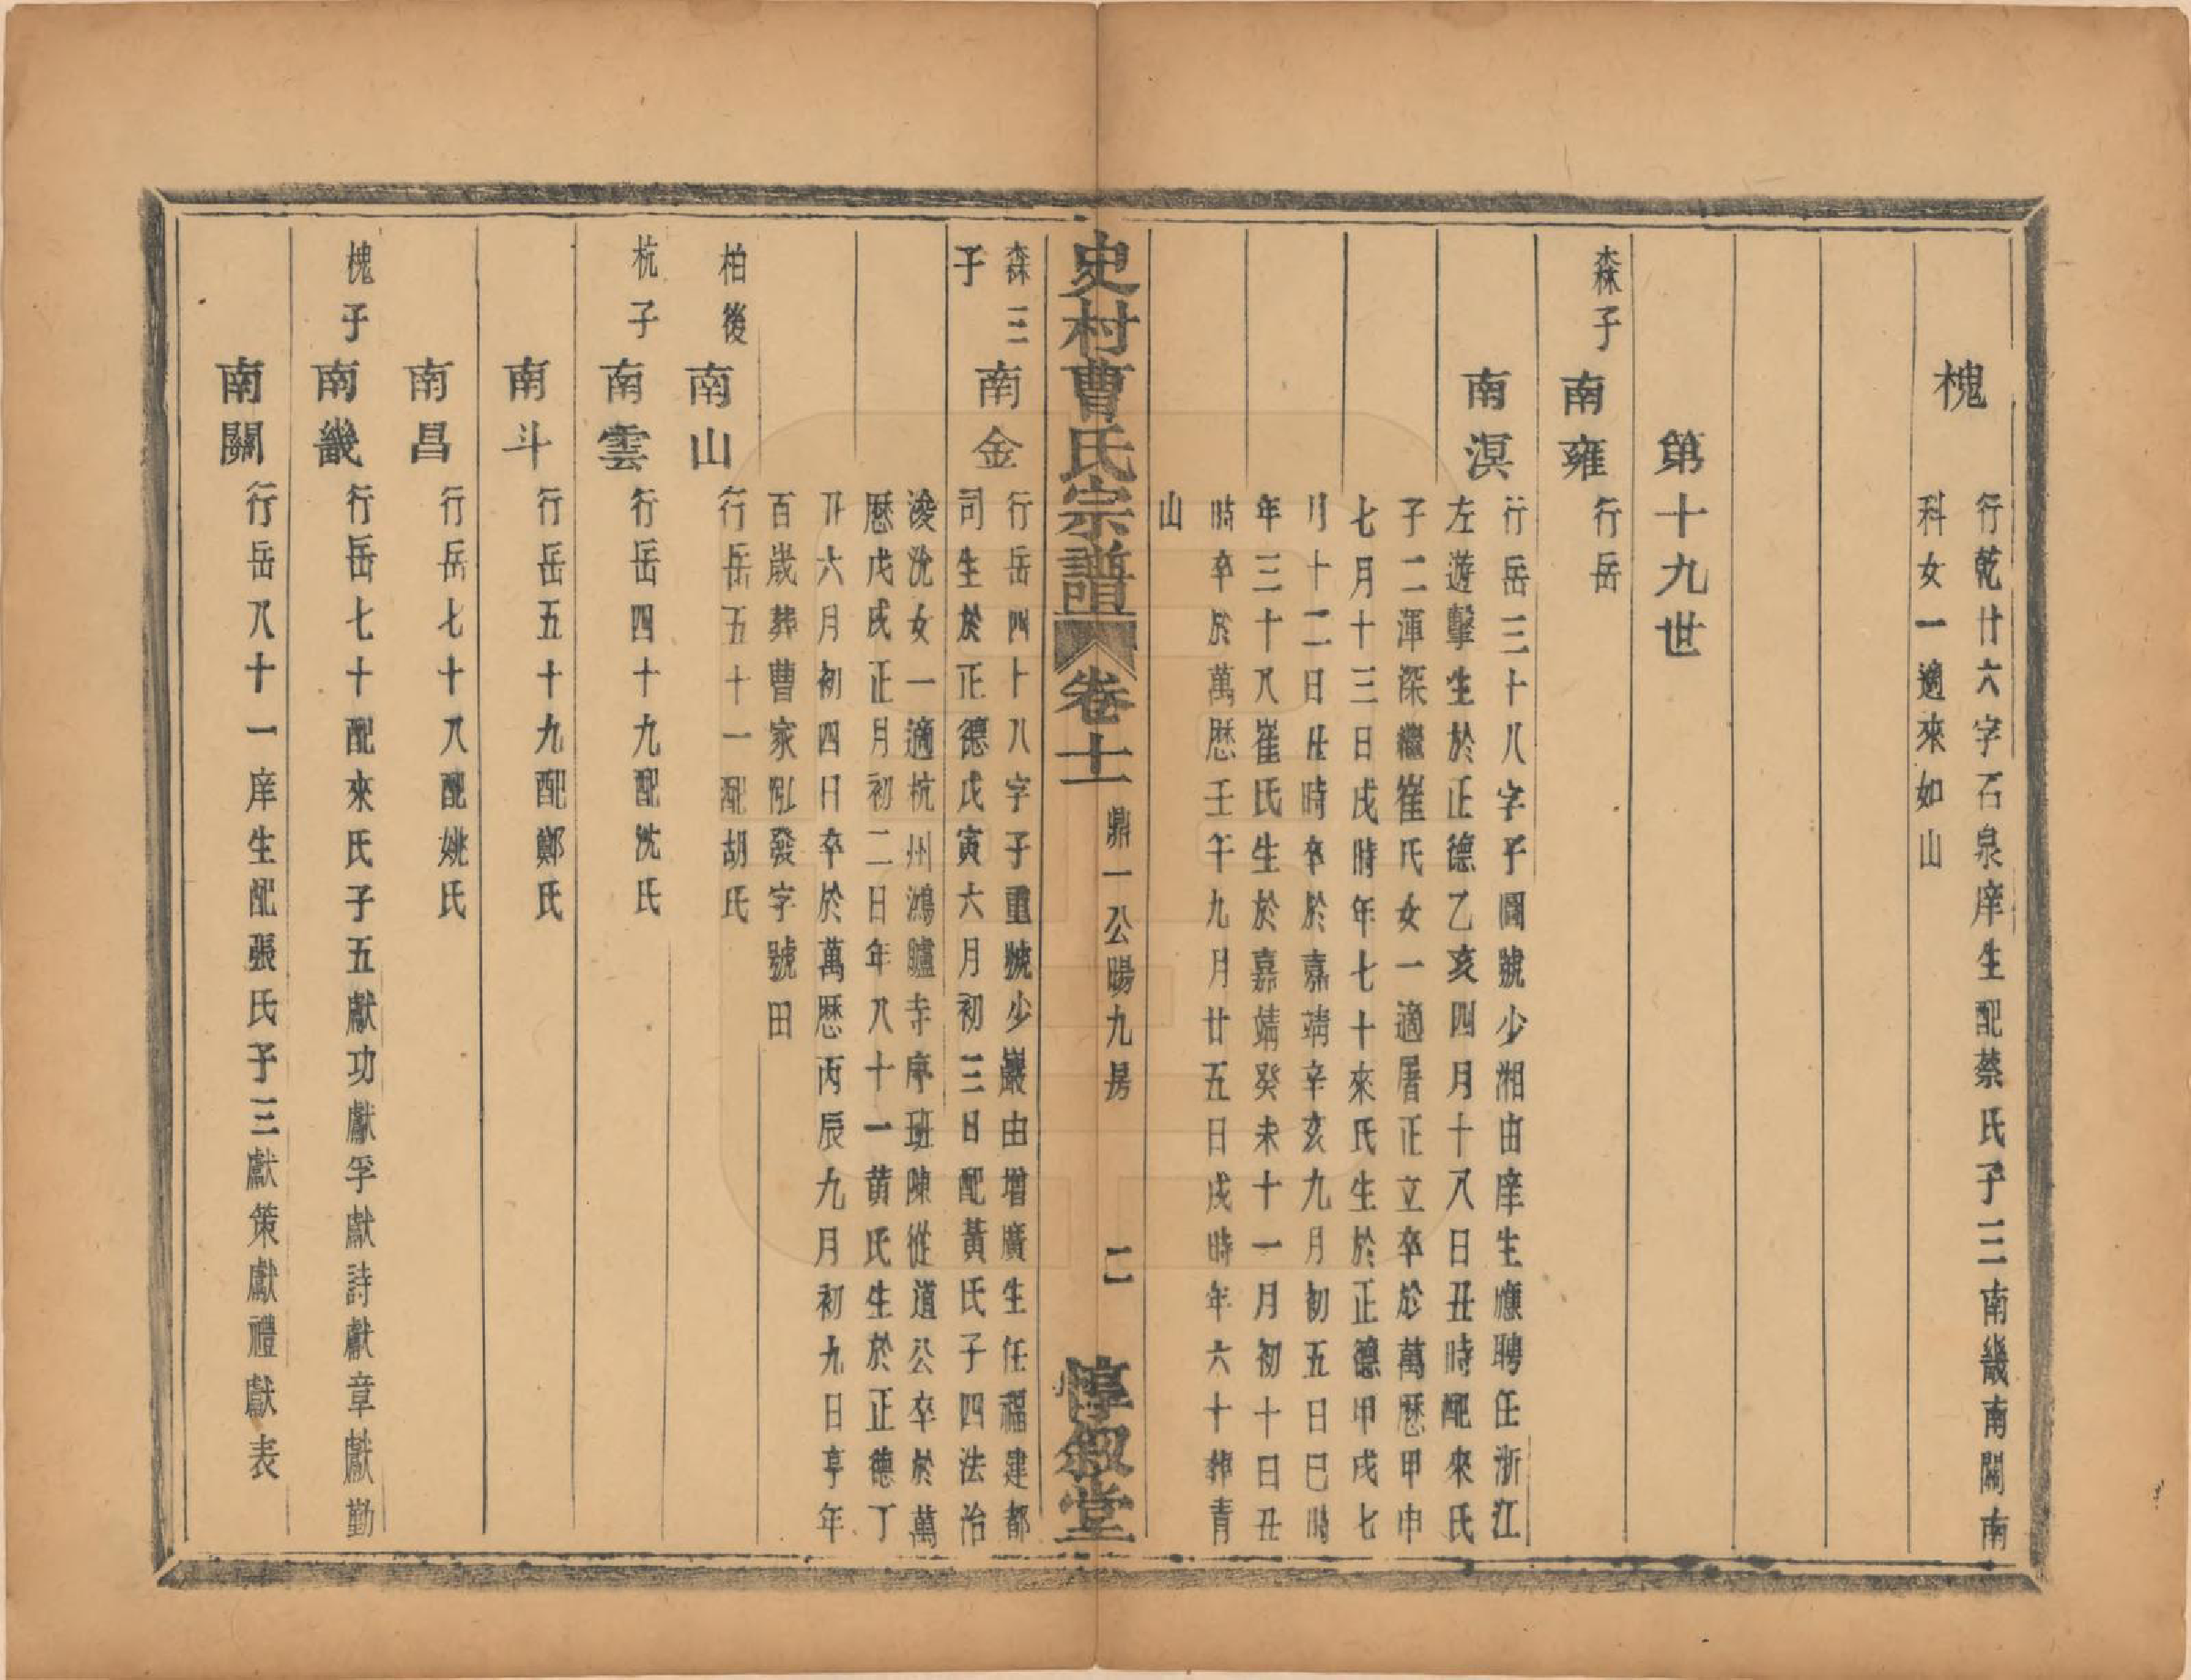 槐
行乾廿六字石泉庠生配蔡氏子三南畿南關南
科女一適來如山
第十九世
森子
南雍
行岳
南溟
行岳三十八字子圖號少湘由庠生應聘任浙江
左遊擊生於正德乙亥四月十八日丑時配來氏
子二渾深繼崔氏女一適屠正立卒於萬歷甲申
七月十三日戌時年七十來氏生於正德甲戌七
月十二日 時卒於嘉靖辛亥九月初五日巳時
年三十八崔氏生於嘉靖癸未十一月初十日丑
時卒於萬歷壬午九月廿五日戌時年六十葬青
山
史村曹氏宗譜
卷十一
鼎一公暘九房
二
惇敘堂
森三
子
南金
行岳四十八字子重號少巖由增廣生任福建都
司生於正德戊寅六月初三日配黃氏子四法治
浚沇女一適杭州鴻臚寺序班陳從道公卒於萬
歷戊戌正月初二日年八十一黃氏生於正德丁
丑六月初四日卒於萬歷丙辰九月初九日享年
百歲葬曹家 發字號田
柏後
南山
行岳五十一配胡氏
杭子
南雲
行岳四十九配沈氏
南斗
行岳五十九配鄭氏
南昌
行岳七十八配姚氏
槐子
南畿
行岳七十配來氏子五獻功獻孚獻詩獻章獻勤
南關
行岳八十一庠生配張氏子三獻策獻禮獻表